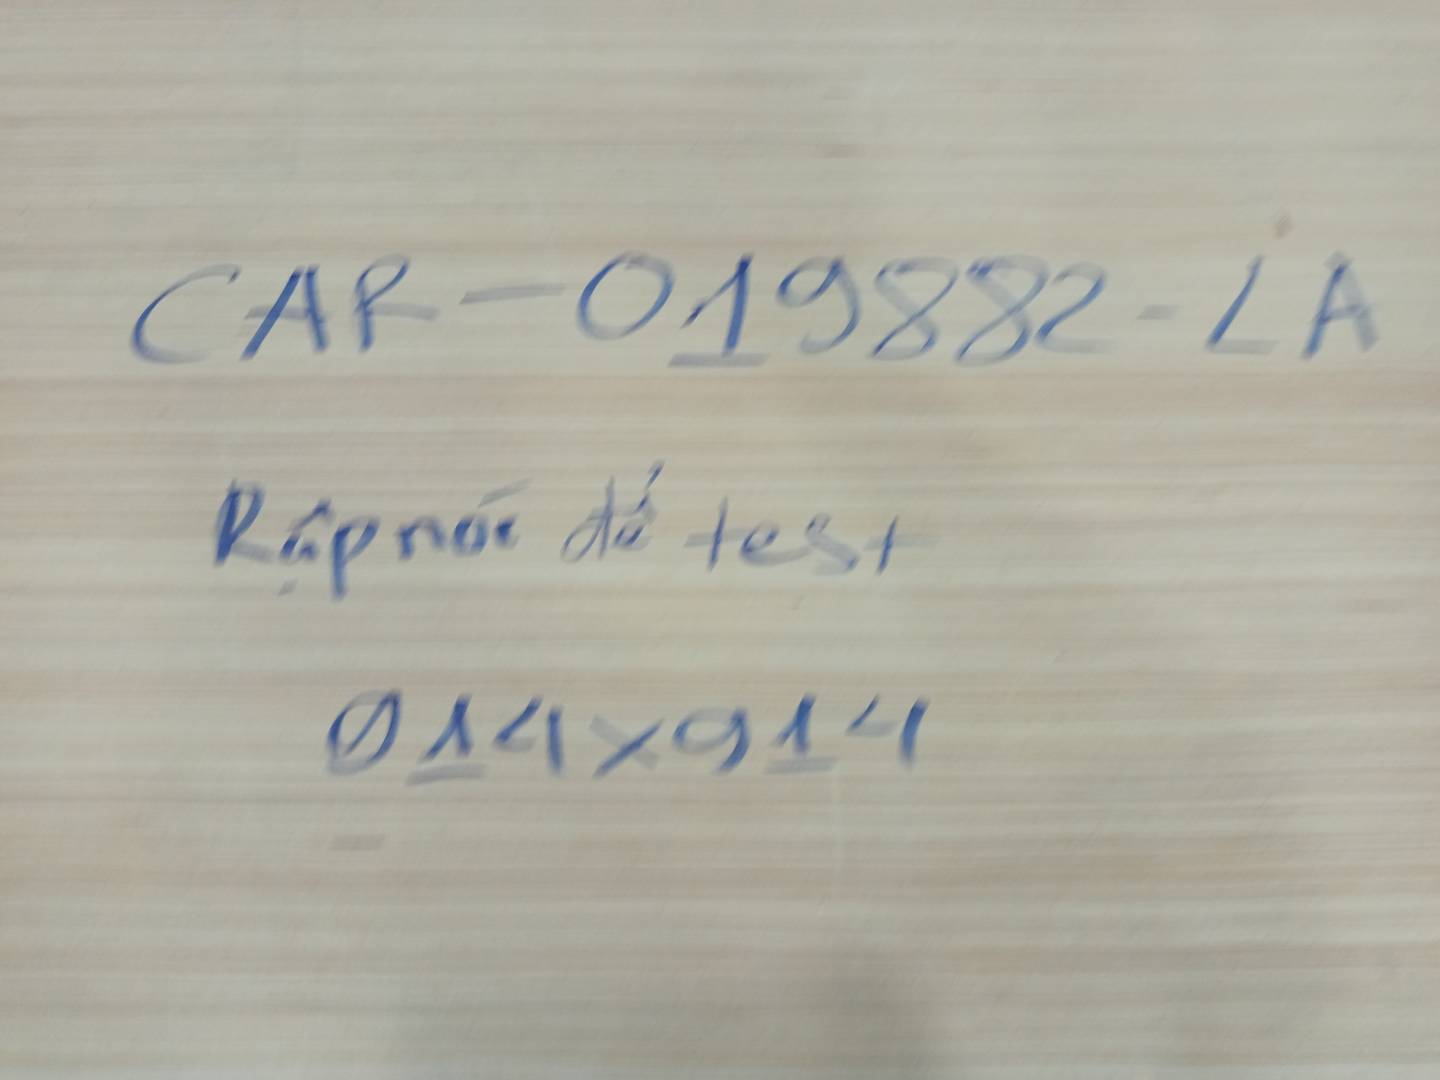 CAR-019882-LA
Rập nối để test
Ø14x914